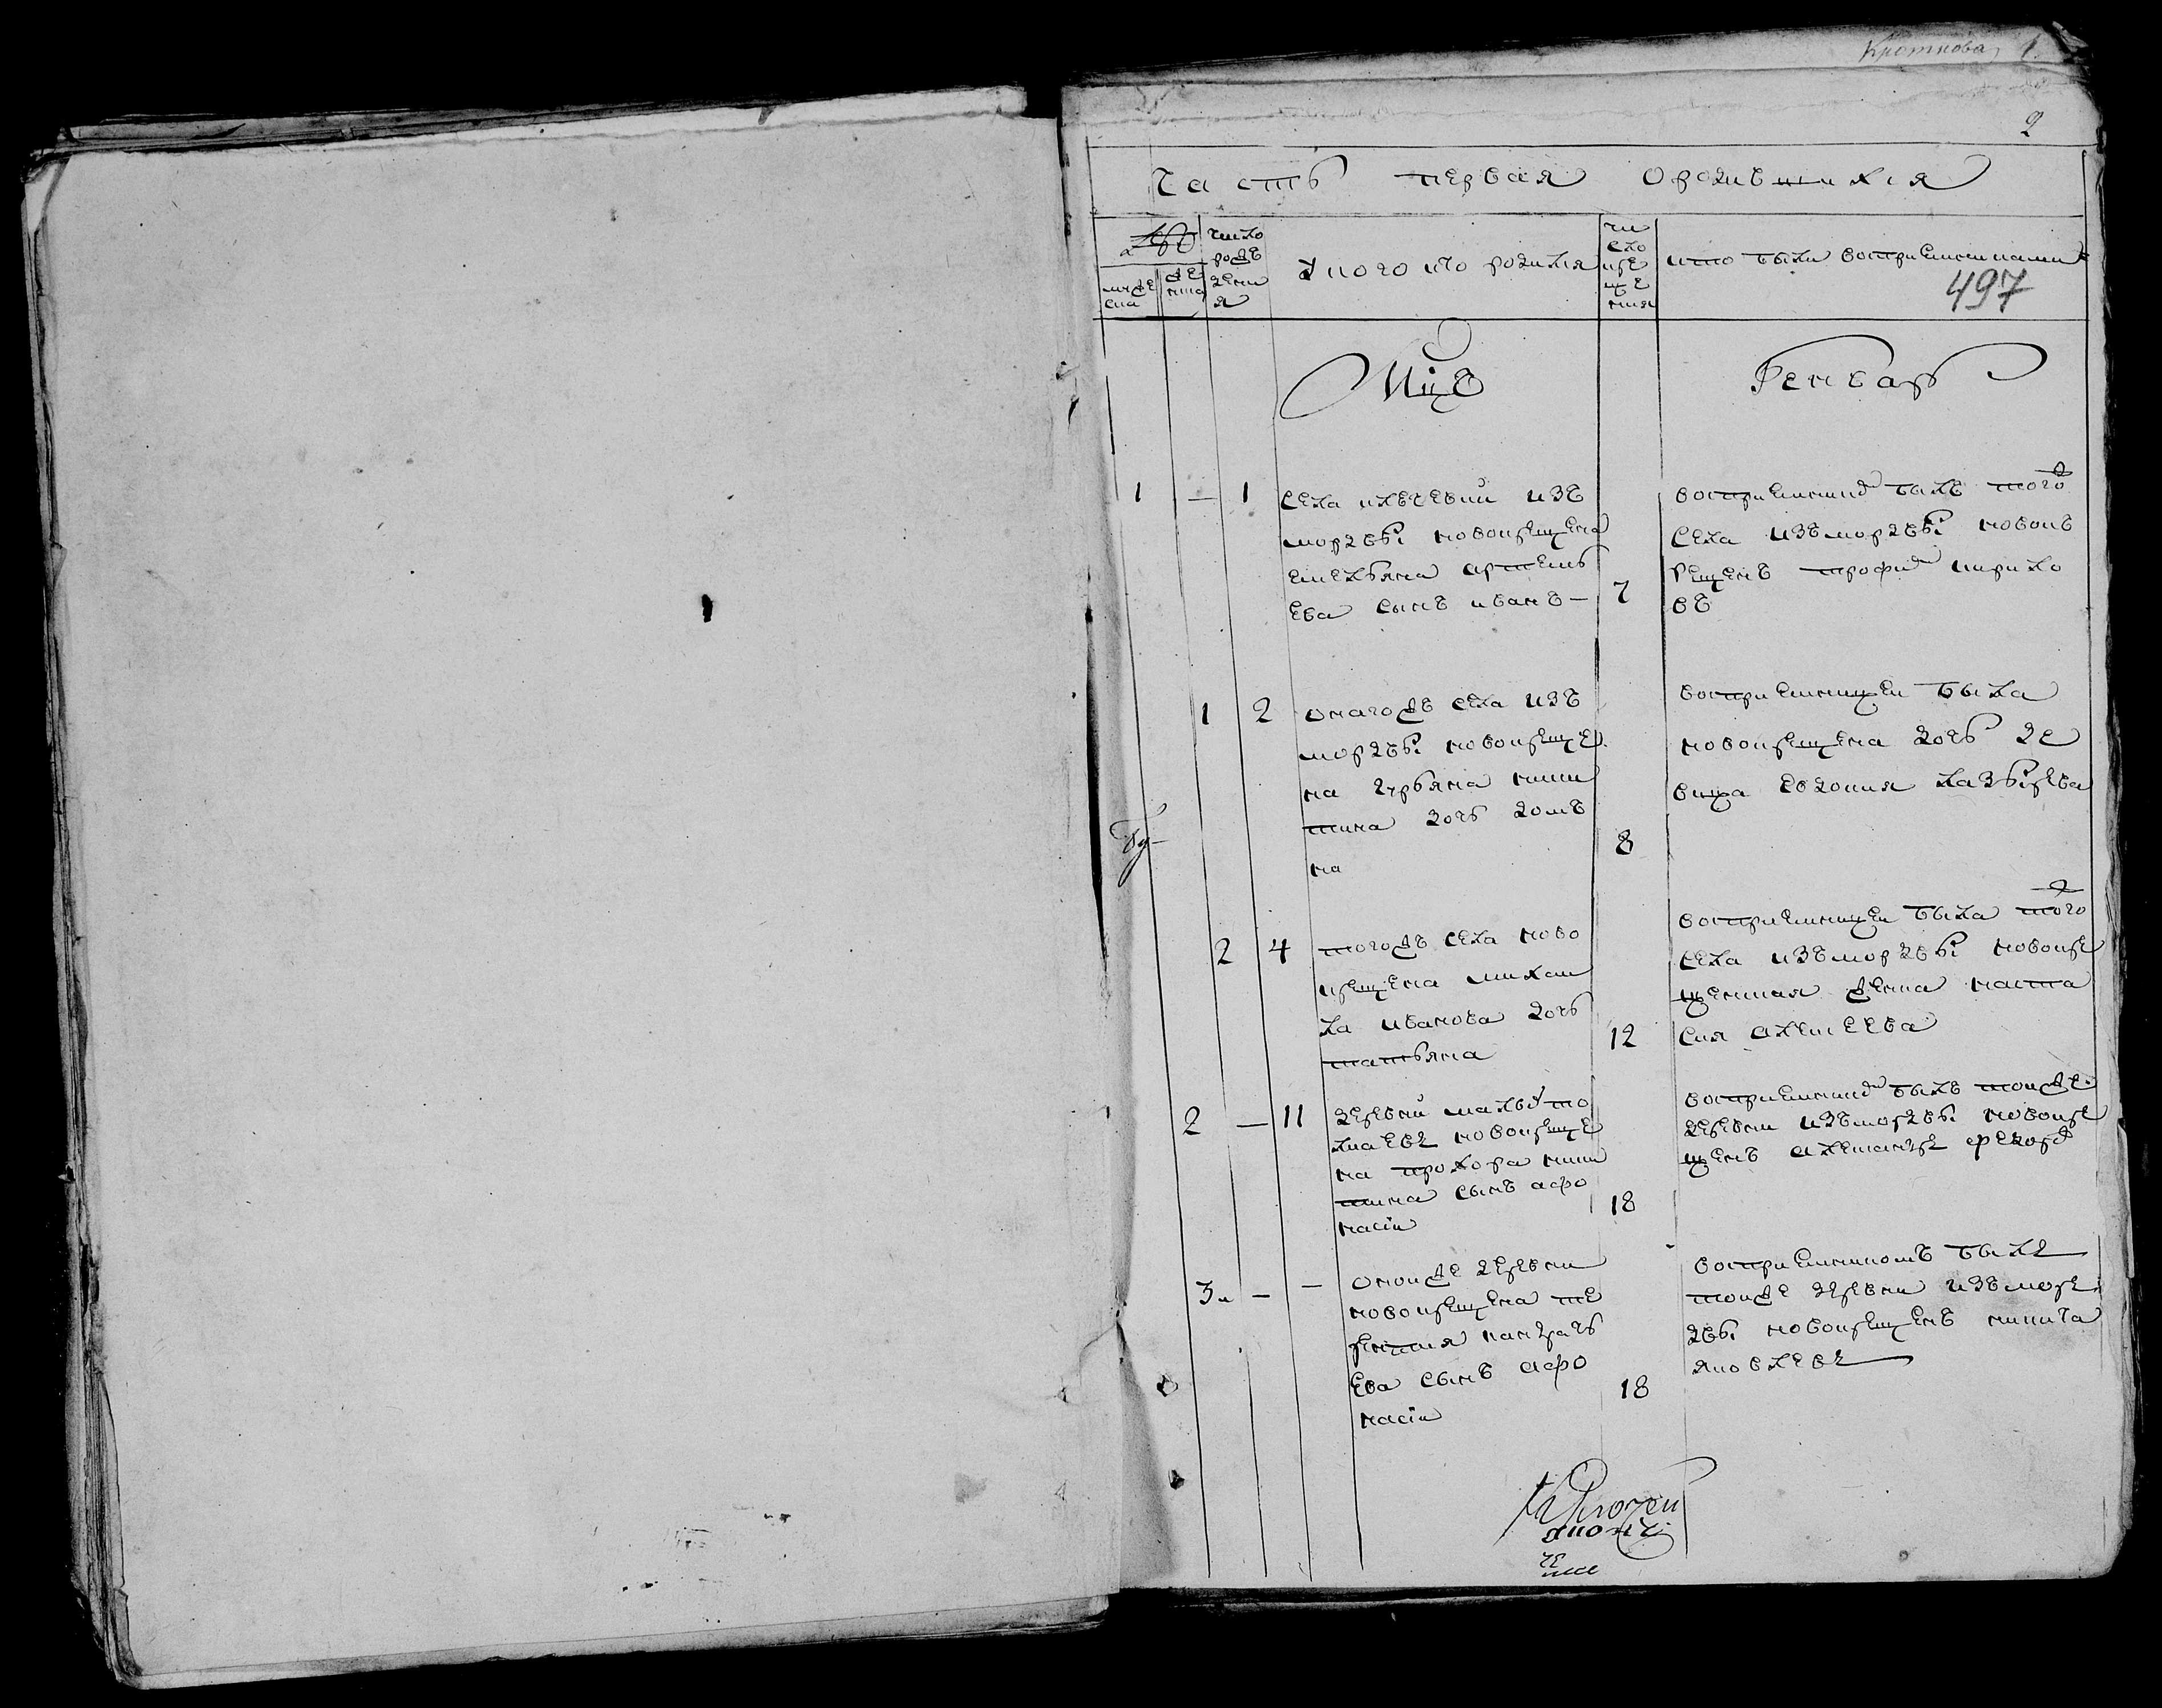 Кроткова 1
2
Часть первая Ородившихся
число рождения
мужеска
женска
У кого кто родился
число крещения
кто были восприемниками
497
Мцъ Генварь
1 — 1
села ключевки изъ
мордвы новокрещена
емельяна артемь
ева сынъ иванъ —
7
восприемникъ былъ тогож
села изъ мордвы новок
рещенъ трофим кирило
въ
1 2
оногожъ села изъ
мордвы новокреще
на гурьяна ники
тина дочь домъ
на
8
восприемницеи была
новокрещена дочь де
вица евдокия лазырева
2 4
тогожъ села ново
крещена михаи
ла иванова дочь
татьяна
12
восприемницеи была тогож
села изъ мордвы новокре
щенная женка наста
сия алексеева
2 — 11
деревни малыя то
новокреще
на прохора ники
тина сынъ афо
насiи
18
восприемник былъ тоиже
деревни изъ мордвы новокре
щенъ александръ федоров
3 — —
оноиже деревни
новокрещена те
рентия кандрать
ева сынъ афо
насiи
18
восприемникомъ былъ
тоиже деревни изъ мор
двы новокрещенъ никита
яковлевъ